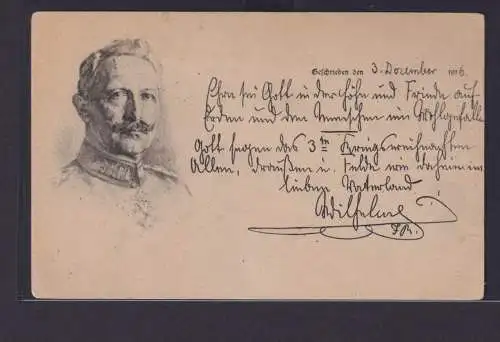 Geschrieben den 3. Dezember 1916.
Ehre sei Gott in der Höhe und Friede auf
Erden und den Menschen ein Wohlgefallen
Gott segne das 3te Kriegsweihnachten
Allen, draußen i. Felde wie daheim im
lieben Vaterland
Wilhelm
I.R.